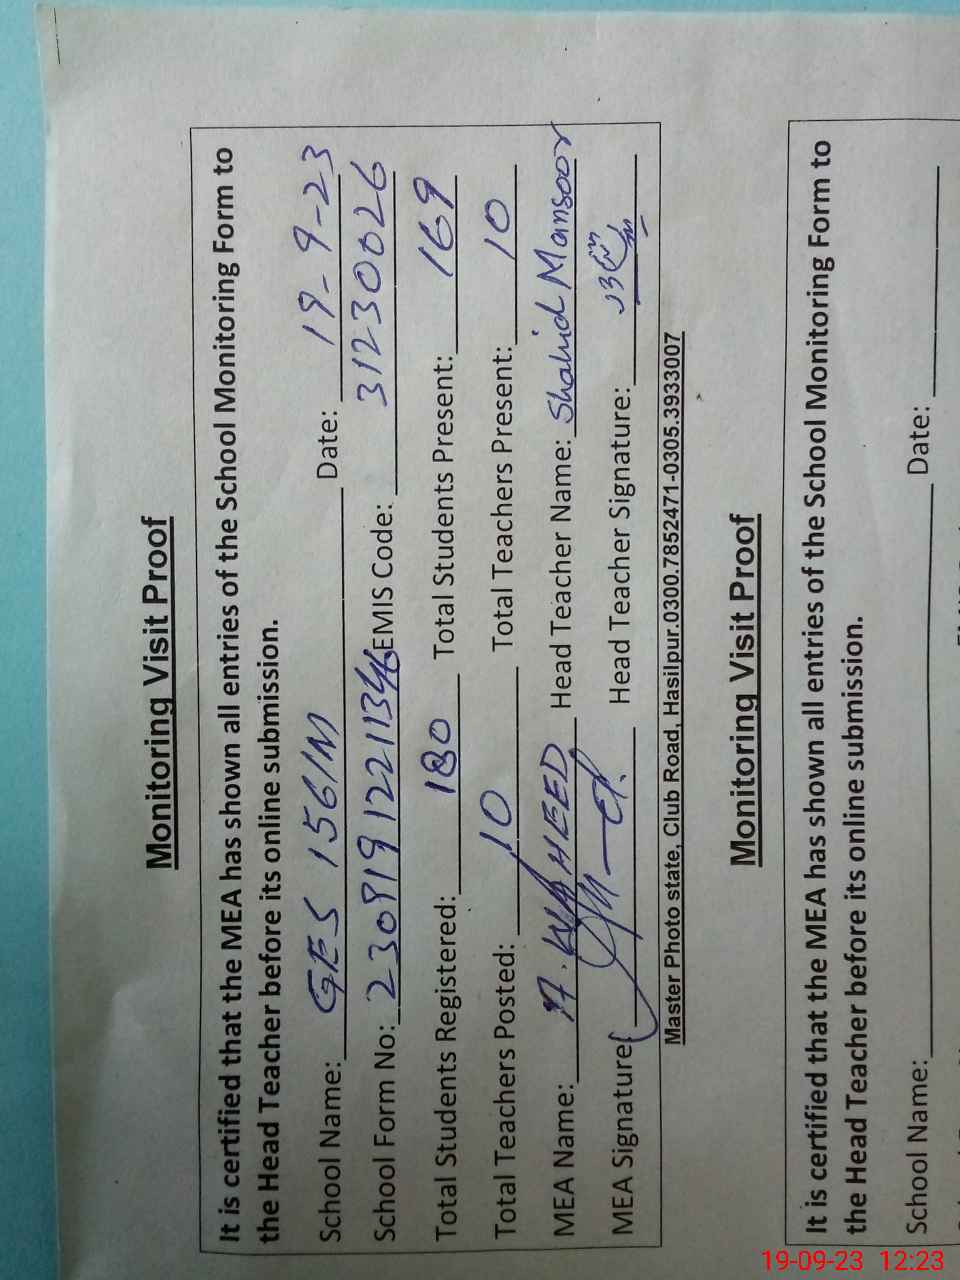 Monitoring Visit Proof
It is certified that the MEA has shown all entries of the School Monitoring Form to
the Head Teacher before its online submission.
School Name: GES 156/M Date: 19-9-23
School Form No: 23091912211346 EMIS Code: 31230026
Total Students Registered: 180 Total Students Present: 169
Total Teachers Posted: 10 Total Teachers Present: 10
MEA Name: A. WAHEED Head Teacher Name: Shahid Mansoor
MEA Signature: Head Teacher Signature:
Master Photo state, Club Road, Hasilpur.0300.7852471-0305.3933007
Monitoring Visit Proof
It is certified that the MEA has shown all entries of the School Monitoring Form to
the Head Teacher before its online submission.
School Name: Date:
19-09-23 12:23